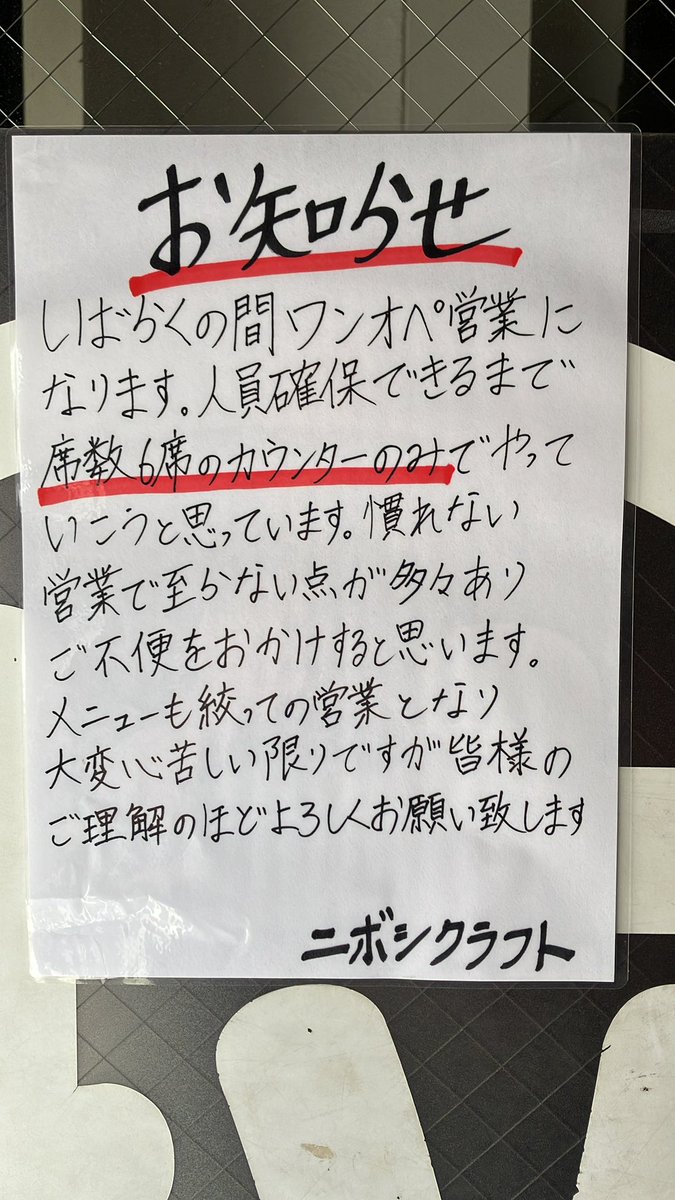 お知らせ
しばらくの間ワンオペ営業に
なります。人員確保できるまで
席数6席のカウンターのみでやって
いこうと思っています。慣れない
営業で至らない点が多々あり
ご不便をおかけすると思います。
メニューも絞っての営業となり
大変心苦しい限りですが皆様の
ご理解のほどよろしくお願い致します
ニボシクラフト